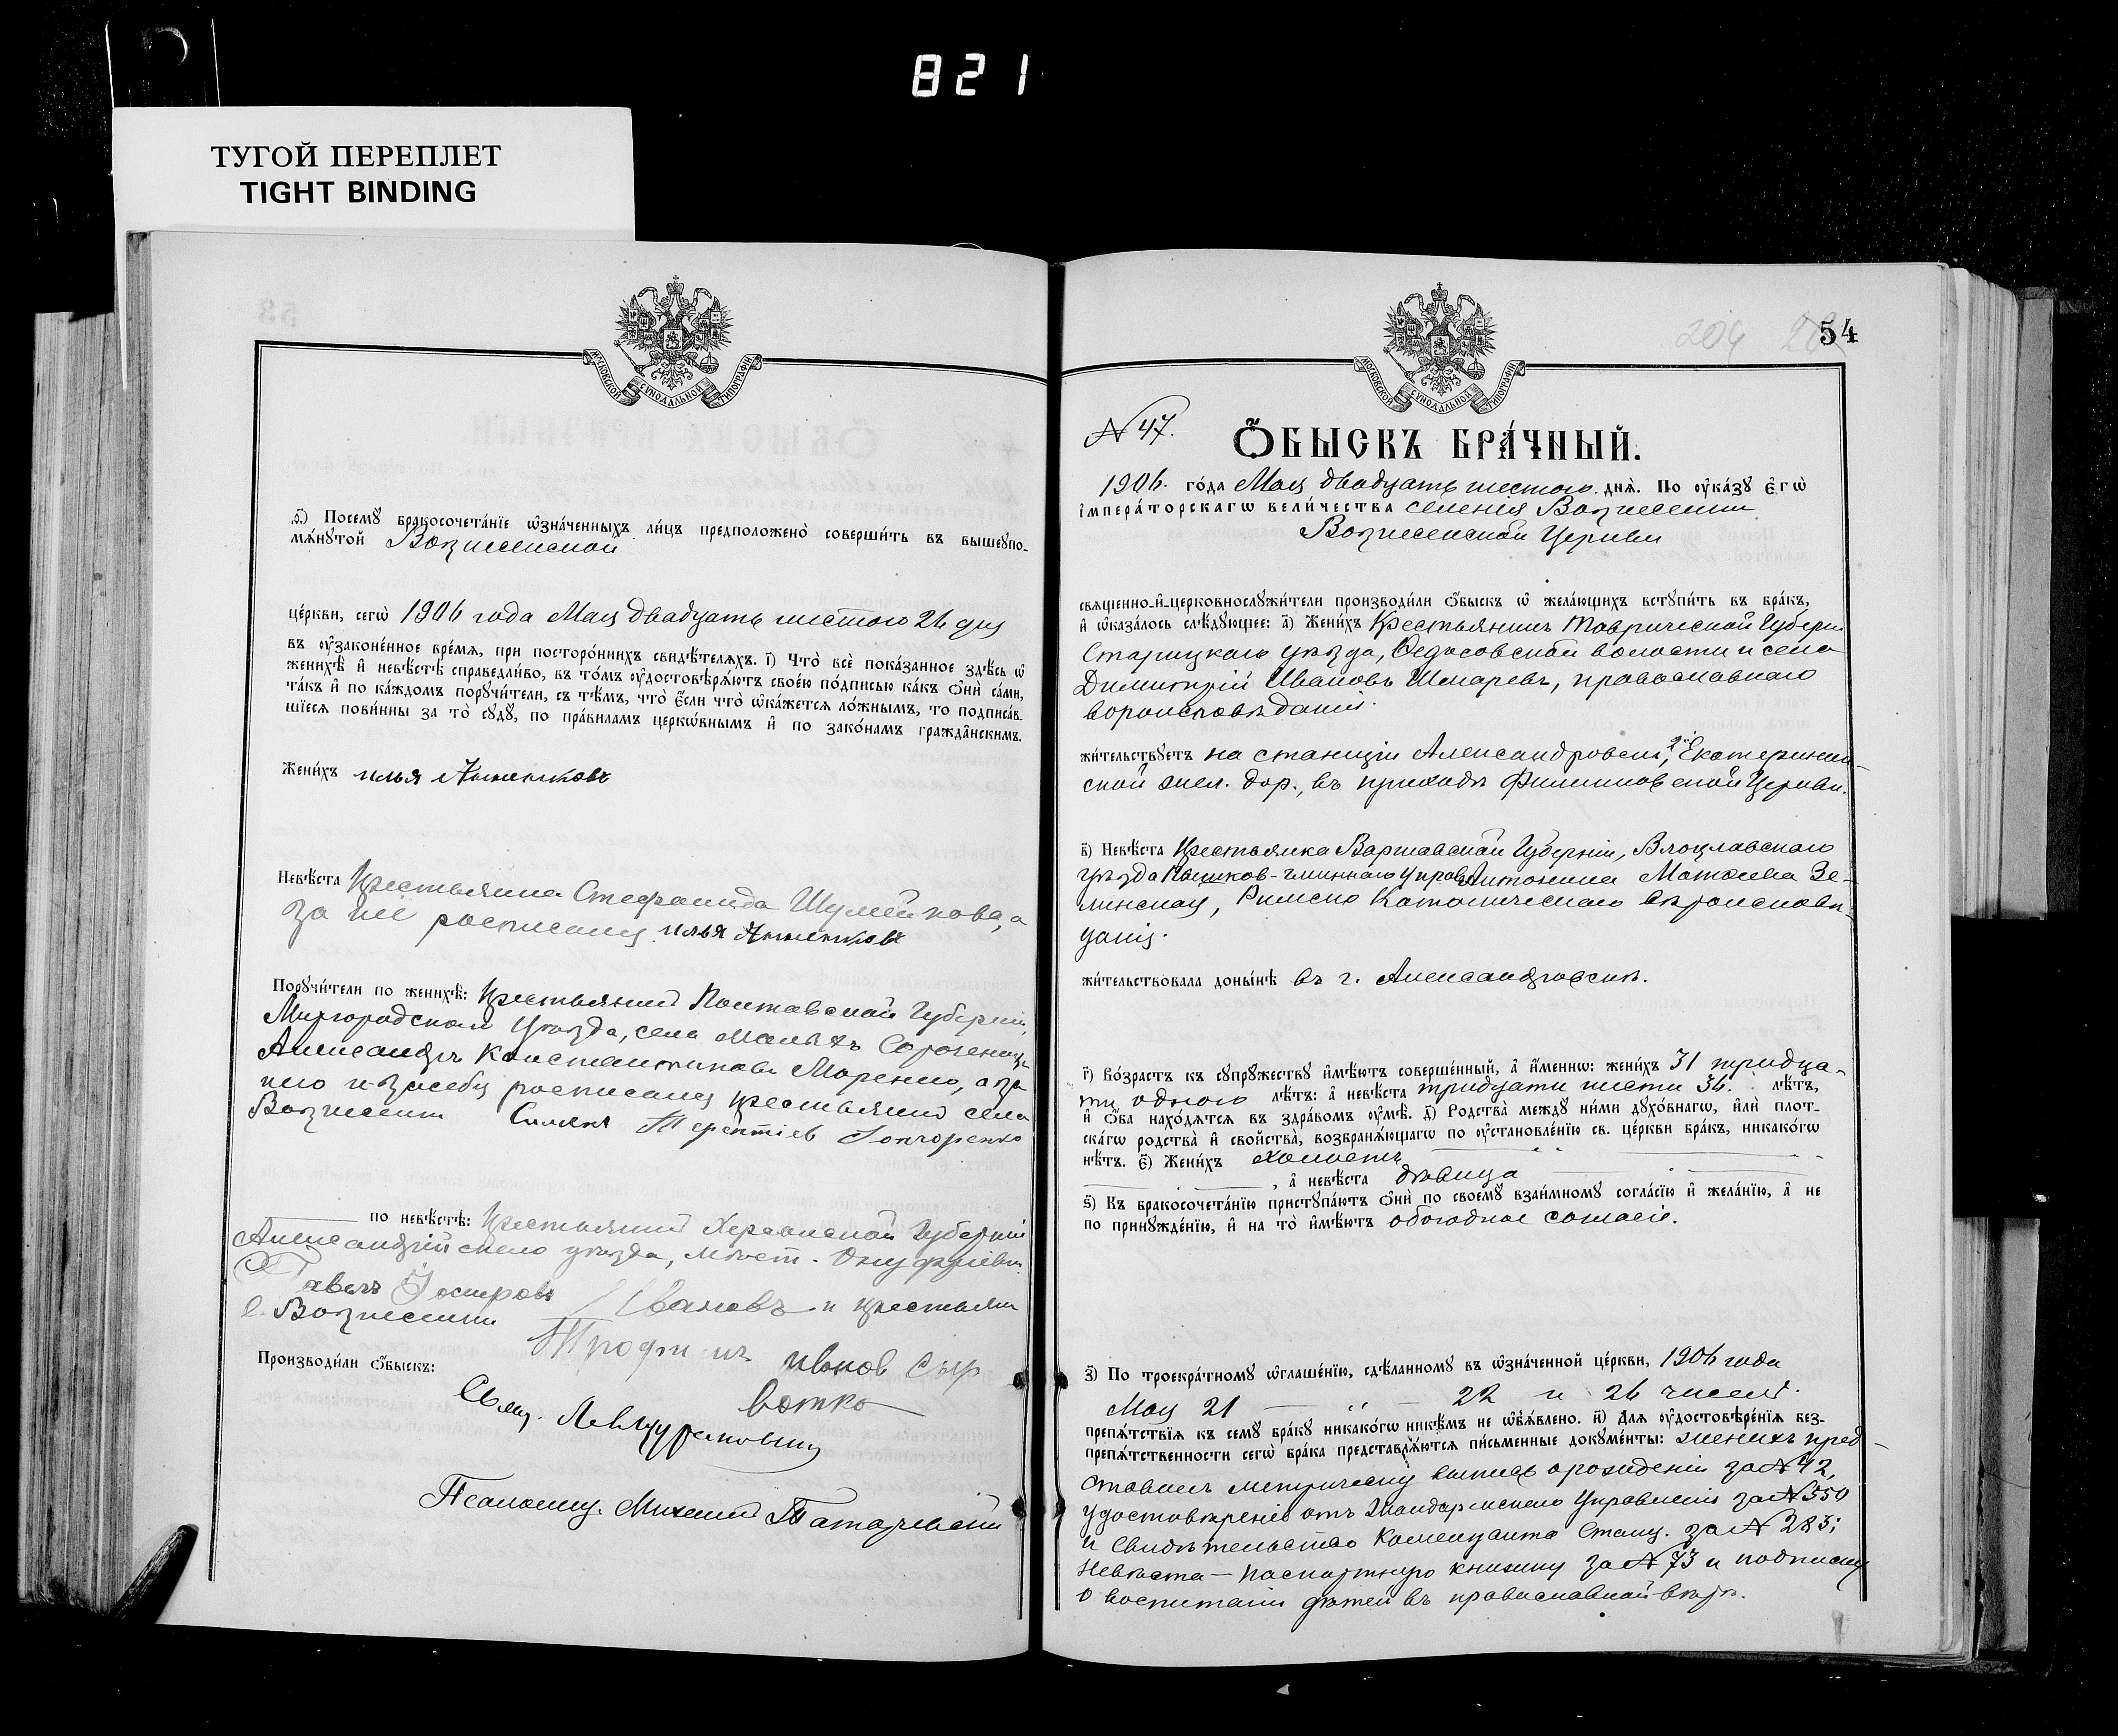 821
ТУГОЙ ПЕРЕПЛЕТ
TIGHT BINDING
МОСКОВСКОЙ СѴНОДАЛЬНОЙ ТИПОГРАФІИ
ѳ҃) Посемꙋ бракосочета́нїе ѡ҆зна́ченныхъ ли́цъ предположено̀ соверши́ть въ вышеꙋпо-
мѧ́нꙋтой Вознесенской
це́ркви, сегѡ̀ 1906 года Мая двадцать шестого 26 дня
въ ᲂу҆зако́ненное вре́мѧ, при посторо́ннихъ свидѣ́телѧхъ. і҃) Что̀ всѐ пока́занное здѣ́сь ѡ҆
женихѣ̀ и҆ невѣ́стѣ справедли́во, въ то́мъ ᲂу҆достовѣрѧ́ютъ свое́ю по́дписью ка́къ ѻ҆нѝ са́ми,
та́къ и҆ по ка́ждомъ порꙋчи́тели, съ тѣ́мъ, что̀ є҆́сли что̀ ѡ҆ка́жется ло́жнымъ, то подписа́в-
шїеся пови́нны за то̀ сꙋдꙋ̀, по пра́виламъ церкѡ́внымъ и҆ по зако́намъ гражда̑нскимъ.
Жени́хъ илья Анненковъ
Невѣ́ста Крестьянка Стефанида Шумейкова, а
за неё росписался илья Анненковъ
Порꙋчи́тели по женихѣ̀: Крестьянинъ Полтавской Губерніи,
Миргородскаго Уѣзда, села Малыхъ Сорочинецъ
Александръ Константиновъ Маренко, а за
него и за себя росписался крестьянинъ села
Вознесенки Симеонъ Терентіев Гончоренко
по невѣ́стѣ: Крестьянинъ Херсонской Губерніи
Александрійскаго уѣзда, мѣст. Онуфріевки
Павелъ Ивановъ и крестьянинъ
с. Вознесенки
Трофимъ ивонов Сыр
вотко
Производи́ли ѻ҆́быскъ:
Свящ.
Псаломщ. Михаилъ Татаревскій
МОСКОВСКОЙ СѴНОДАЛЬНОЙ ТИПОГРАФІИ
204
54
№ 47.
Ѻ҆БЫСКЪ БРА́ЧНЫЙ.
1906. го́да Мая двадцать шестого днѧ̀. По ᲂу҆ка́зꙋ є҆гѡ̀
і҆мпера́торскагѡ вели́чества селенія Вознесенки
Вознесенской Церкви
свѧщенно-и҆-церковнослꙋжи́тели производи́ли ѻ҆́быскъ ѡ҆ жела́ющихъ встꙋпи́ть въ бра́къ,
и҆ ѡ҆каза́лось слѣ́дꙋющее: а҃) Жени́хъ Крестьянинъ Таврической Губерн.
Старицкаго уѣзда, Федосовской волости и села
Димитрій Ивановъ Шмаревъ, православнаго
вѣроисповѣданія.
жи́тельствꙋетъ на станціи Александровскъ, Екатеринин-
ской жел. дор., въ приходѣ Филипповской Церкви.
в҃) Невѣ́ста Крестьянка Варшавской Губерніи, Влоцлавскаго
уѣзда Антонина Матѳеева Зе-
линская, Римско Католическаго вѣроисповѣ-
данія.
жи́тельствовала доны́нѣ въ г. Александровскѣ.
г҃) Во́зрастъ къ сꙋпрꙋ́жествꙋ и҆мѣ́ютъ соверше́нный, а҆ и҆́меннѡ: жени́хъ 31 тридца-
ти одного лѣ́тъ: а҆ невѣ́ста тридцати шести 36. лѣ́тъ,
и҆ ѻ҆́ба нахо́дятся въ здра́вомъ ᲂу҆мѣ̀. д҃) Родства̀ междꙋ ни́ми дꙋхо́внагѡ, и҆лѝ плот-
ска́гѡ родства̀ и҆ свойства̀, возбранѧ́ющагѡ по ᲂу҆становле́нїю св. це́ркви бра́къ, никако́гѡ
нѣ́тъ. є҃) Жени́хъ холостъ
, а҆ невѣ́ста дѣвица
ѕ҃) Къ бракосочета́нїю пристꙋпа́ютъ ѻ҆нѝ по своемꙋ̀ взаи́мномꙋ согла́сїю и҆ жела́нїю, а҆ не
по принꙋжде́нїю, и҆ на то̀ и҆мѣ́ютъ обоюдное согласіе.
з҃) По троекра́тномꙋ ѡ҆глаше́нїю, сдѣ́ланномꙋ въ ѡ҆зна́ченной це́ркви, 1906 года
Мая 21 — „ — 22 и 26 чиселъ.
препѧ́тствїѧ къ семꙋ̀ бра́кꙋ никако́гѡ никѣ́мъ не ѡ҆б̾ѧ́влено. и҃) Длѧ ᲂу҆достовѣре́нїѧ без-
препѧ́тственности сегѡ̀ бра́ка представлѧ́ются пи́сьменные докꙋме́нты: женихъ пред-
ставилъ метрическую выпись о рожденіи за № 42,
удостовѣреніе отъ Жандармскаго Управленія за № 550
и Свидѣтельство Коменданта Станц. за № 283;
Невѣста — паспортную книжку за № 73 и подписку
о воспитаніи дѣтей въ православной вѣрѣ.